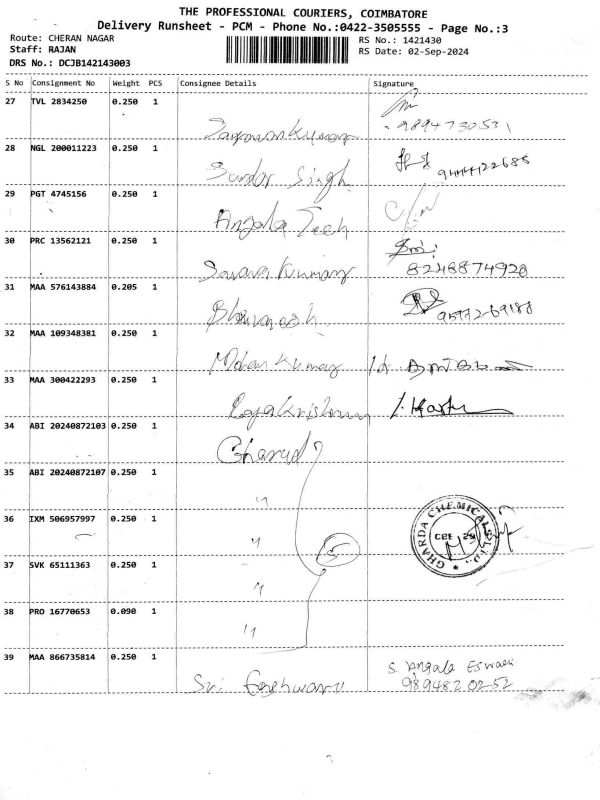 THE PROFESSIONAL COURIERS, COIMBATORE
Delivery Runsheet - PCM - Phone No.:0422-3505555 - Page No.:3
Route: CHERAN NAGAR
RS No.: 1421430
Staff: RAJAN
RS Date: 02-Sep-2024
DRS No.: DCJB142143003
S No Consignment No Weight PCS Consignee Details Signature
27 TVL 2834250 0.250 1
9894730531
28 NGL 200011223 0.250 1 Sundar Singh
9444122685
29 PGT 4745156 0.250 1 Angala Tech
30 PRC 13562121 0.250 1 Saravana Kumar
8248874920
31 MAA 576143884 0.205 1 Bhuvanesh
32 MAA 109348381 0.250 1 Mohan Kumar
33 MAA 300422293 0.250 1 Rajakrishna
34 ABI 20240872103 0.250 1 Gharda
35 ABI 20240872107 0.250 1 "
36 IXM 506957997 0.250 1 "
GHARDA CHEMICALS LTD.
CBE 29
37 SVK 65111363 0.250 1 "
38 PRO 16770653 0.090 1 "
39 MAA 866735814 0.250 1 Sri Eashwari
S. Angala Eswari
9894820252